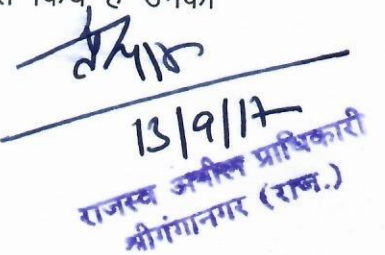 किये है उनका
13/9/17
राजस्व अपील प्राधिकारी
श्रीगंगानगर (राज.)